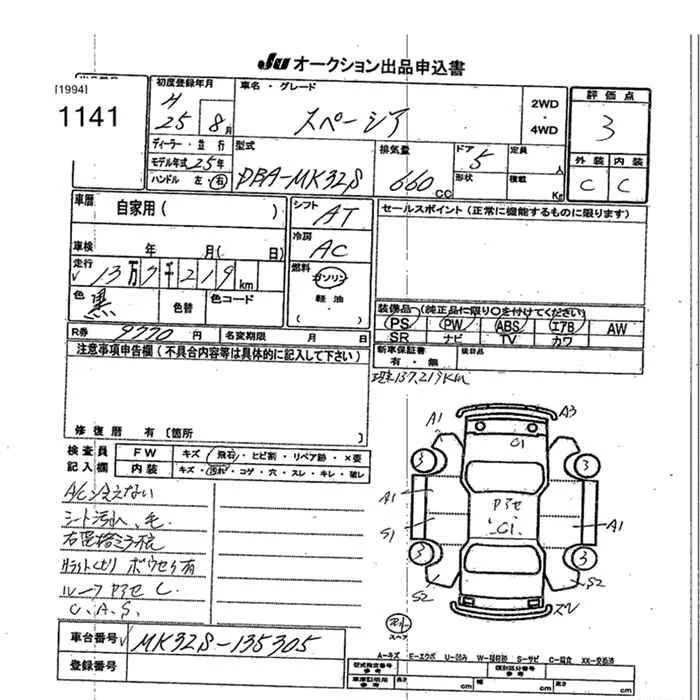 JU オークション出品申込書
[1994]
1141
初度登録年月
H 25 8月
車名・グレード
スペーシア
2WD
・
4WD
評価点
3
外装 内装
C C
ディーラー・並行
モデル年式 25年
ハンドル 左・右
型式
DBA-MK32S
排気量
660 CC
ドア 5
形状
定員 人
積載 Kg
車歴 自家用( )
シフト AT
セールスポイント(正常に機能するものに限ります)
車検 年 月( 日)
冷房 AC
走行
13万7千219km
燃料 ガソリン
軽油
・
( )
色 黒 色替 色コード
装備品 (純正品に限り○を付けてください)
PS PW ABS エアB AW
SR ナビ TV カワ
R券 9770円 名変期限 月 日
新車保証書
有・無
後日品
注意事項申告欄(不具合内容等は具体的に記入して下さい)
現車137,219Km
修復歴 有〔箇所
検査員
記入欄
FW キズ・飛石・ヒビ割・リペア跡・×要
内装 キズ・汚れ・コゲ・穴・スレ・キレ・破レ
A/C冷えない
シート汚れ、毛
ルーフ C
C.A.S.
A1 A3
C1
3 3
A1
C1
S1 A1
3 3
S2 S2
スペア
車台番号 MK32S-135305
登録番号
A-キズ E-エクボ U-凹み W-補修跡 S-サビ C-腐食 XX-交換済
型式指定番号
参考
類別区分番号
参考
車庫証明用
参考
長さ cm 幅 cm 高さ cm